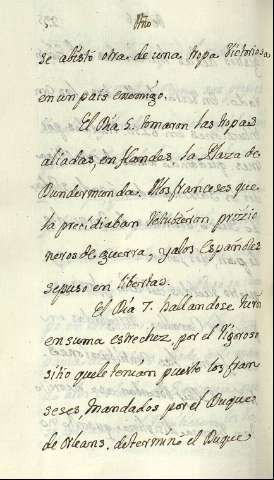 Año
se abistó otra de una tropa Victoriosa
en un pais enemigo.
El Dia 5. tomaron las tropas
aliadas, en flandes la Plaza de
Dundermunda. Alos franceses que
la presidiaban Retubieron prizio
neros de guerra, y alos Españoles
sepuso en libertad.
El Dia 7. hallandose Turin
en suma estrechez, por el Rigoroso
sitio quele tenian puesto los fran
seses, mandados por el Duque
de Orleans. determinó el Duque